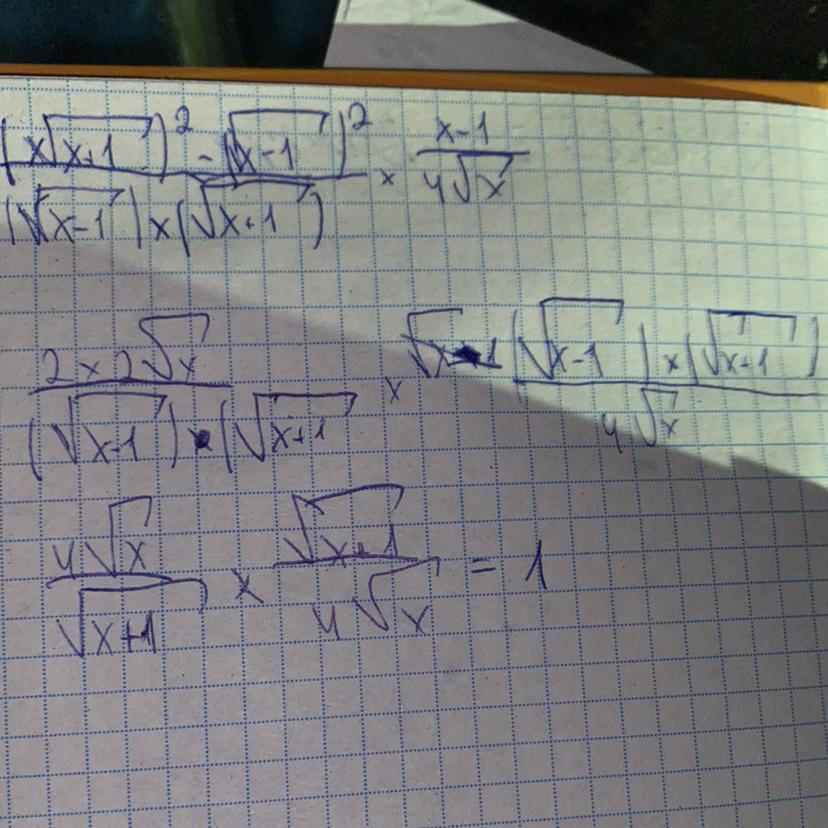 (x√(x+1))² - (√(x-1))² / (√(x-1)) × (√(x+1)) × x-1 / 4√x
2 × 2√x / (√(x-1)) × (√(x+1) × (√(x-1)) × (√(x+1)) / 4√x
4√x / √(x+1) × √(x+1) / 4√x = 1